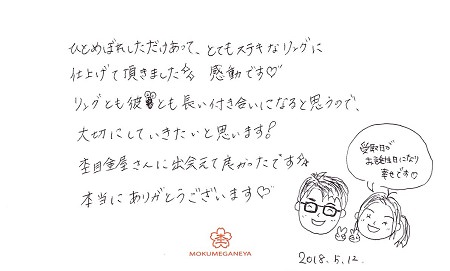 ひとめぼれしただけあって、とてもステキなリングに
仕上げて頂きました☆ 感動です♡
リングとも彼とも長い付き合いになると思うので、
大切にしていきたいと思います!
杢目金屋さんに出会えて良かったです☆
本当にありがとうございます♡
受取日が
お誕生日になり
幸せです♡
MOKUMEGANEYA
2018.5.12.